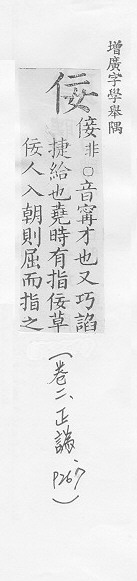 增廣字學舉隅
佞
倿非○音甯才也又巧諂
捷給也堯時有指佞草
佞人入朝則屈而指之
(卷二、正譌、P267)